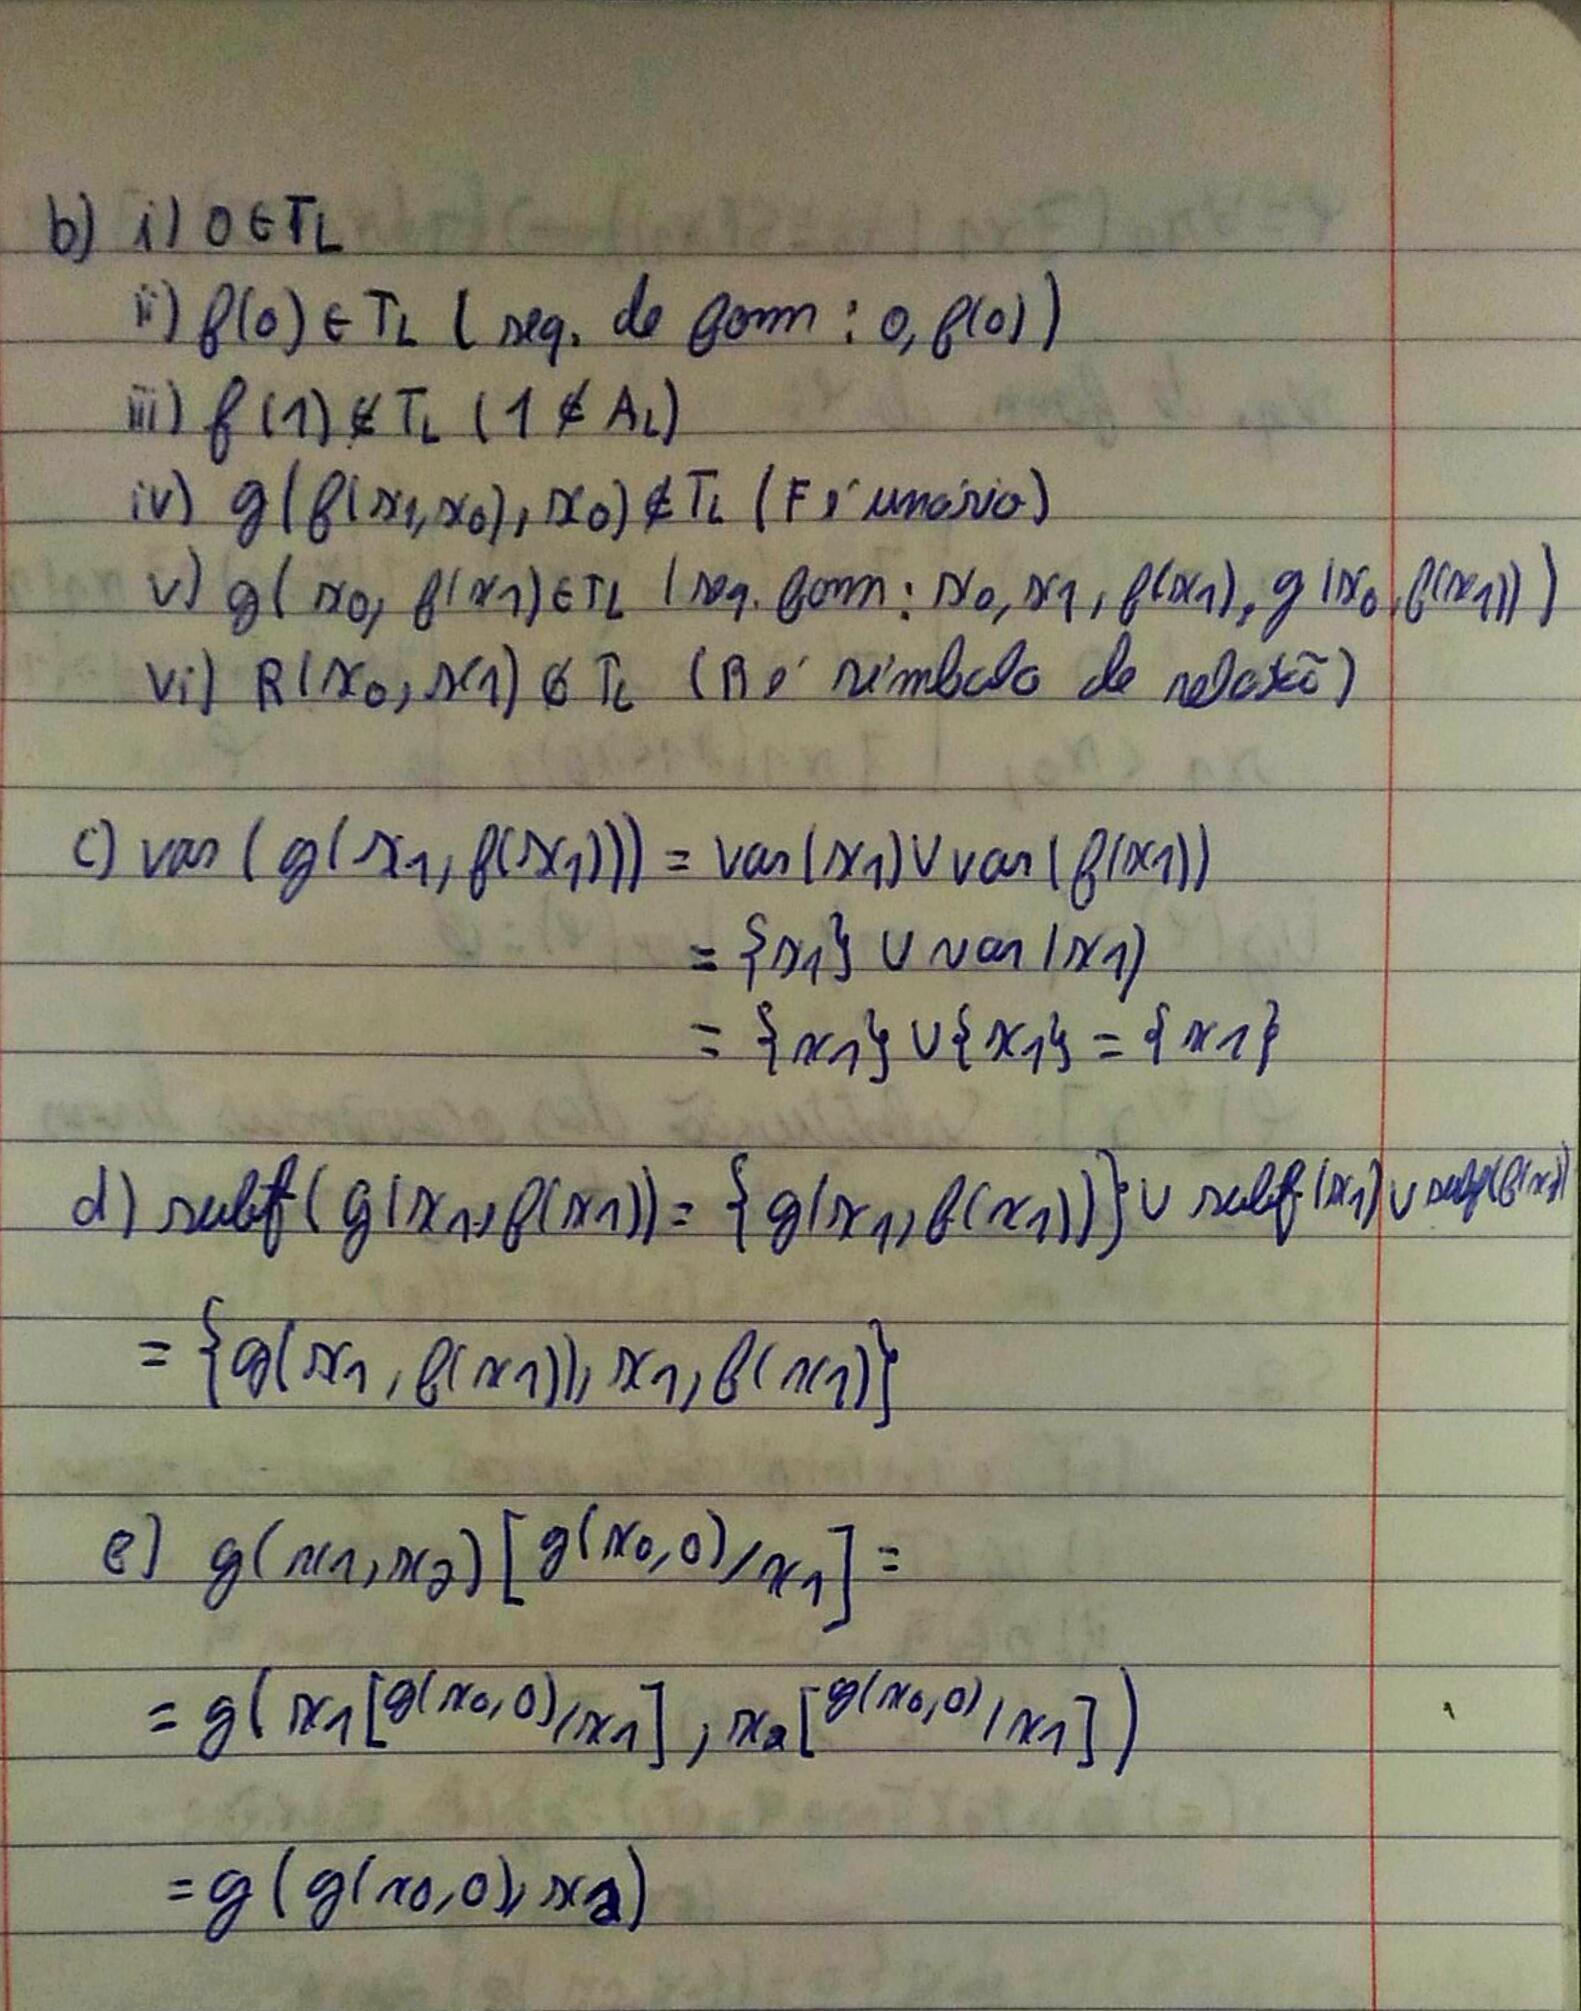 b) i) 0 ∈ T_L
ii) f(0) ∈ T_L (seq. de form : 0, f(0))
iii) f(1) ∉ T_L (1 ∉ A_L)
iv) g(f(x1,x0), x0) ∉ T_L (F é unário)
v) g(x0, f(x1) ∈ T_L (seq. form : x0, x1, f(x1), g(x0, f(x1)))
vi) R(x0, x1) ∉ T_L (R é símbolo de relação)
c) var(g(x1, f(x1))) = var(x1) ∪ var(f(x1))
= {x1} ∪ var(x1)
= {x1} ∪ {x1} = {x1}
d) subt(g(x1, f(x1)) = {g(x1, f(x1))} ∪ subf(x1) ∪ subf(f(x1))
= {g(x1, f(x1)), x1, f(x1)}
e) g(x1, x2) [g(x0,0)/x1] =
= g(x1[g(x0,0)/x1], x2[g(x0,0)/x1])
= g(g(x0,0), x2)